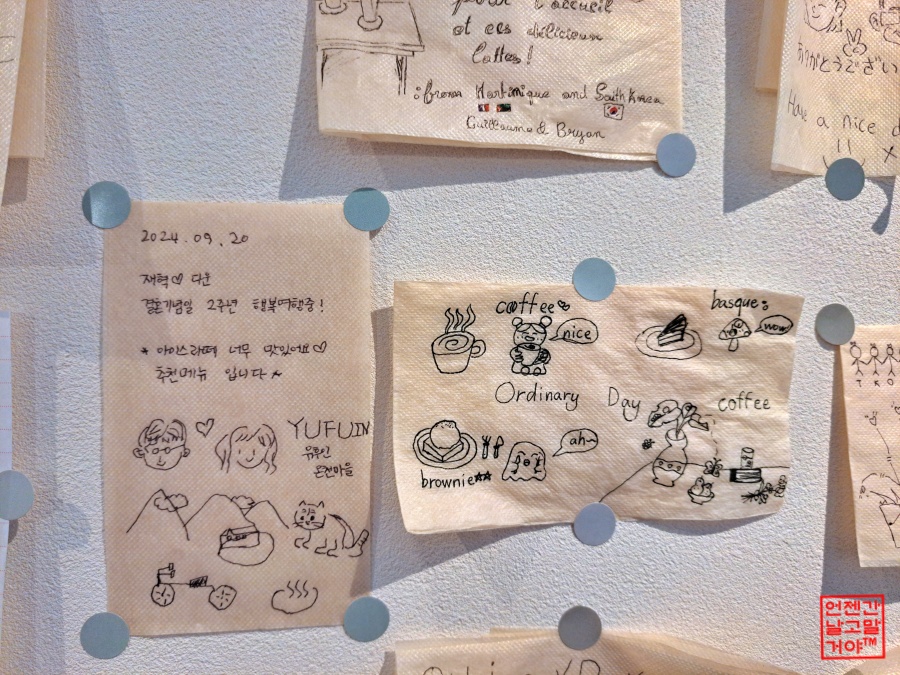 pour l'accueil
et ces délicieux
lattes!
:from Martinique and South Korea
Guillaume & Bryan
ありがとうござい
Have a nice d
2024.09.20
재혁♡다운
결혼기념일 2주년 행복여행중!
* 아이스라떼 너무 맛있어요♡
추천메뉴 입니다
YUFUIN
유후인
온천마을
coffee
nice
basque
wow
Ordinary Day coffee
brownie
ah~
T K O
언젠간
날고말
거야™